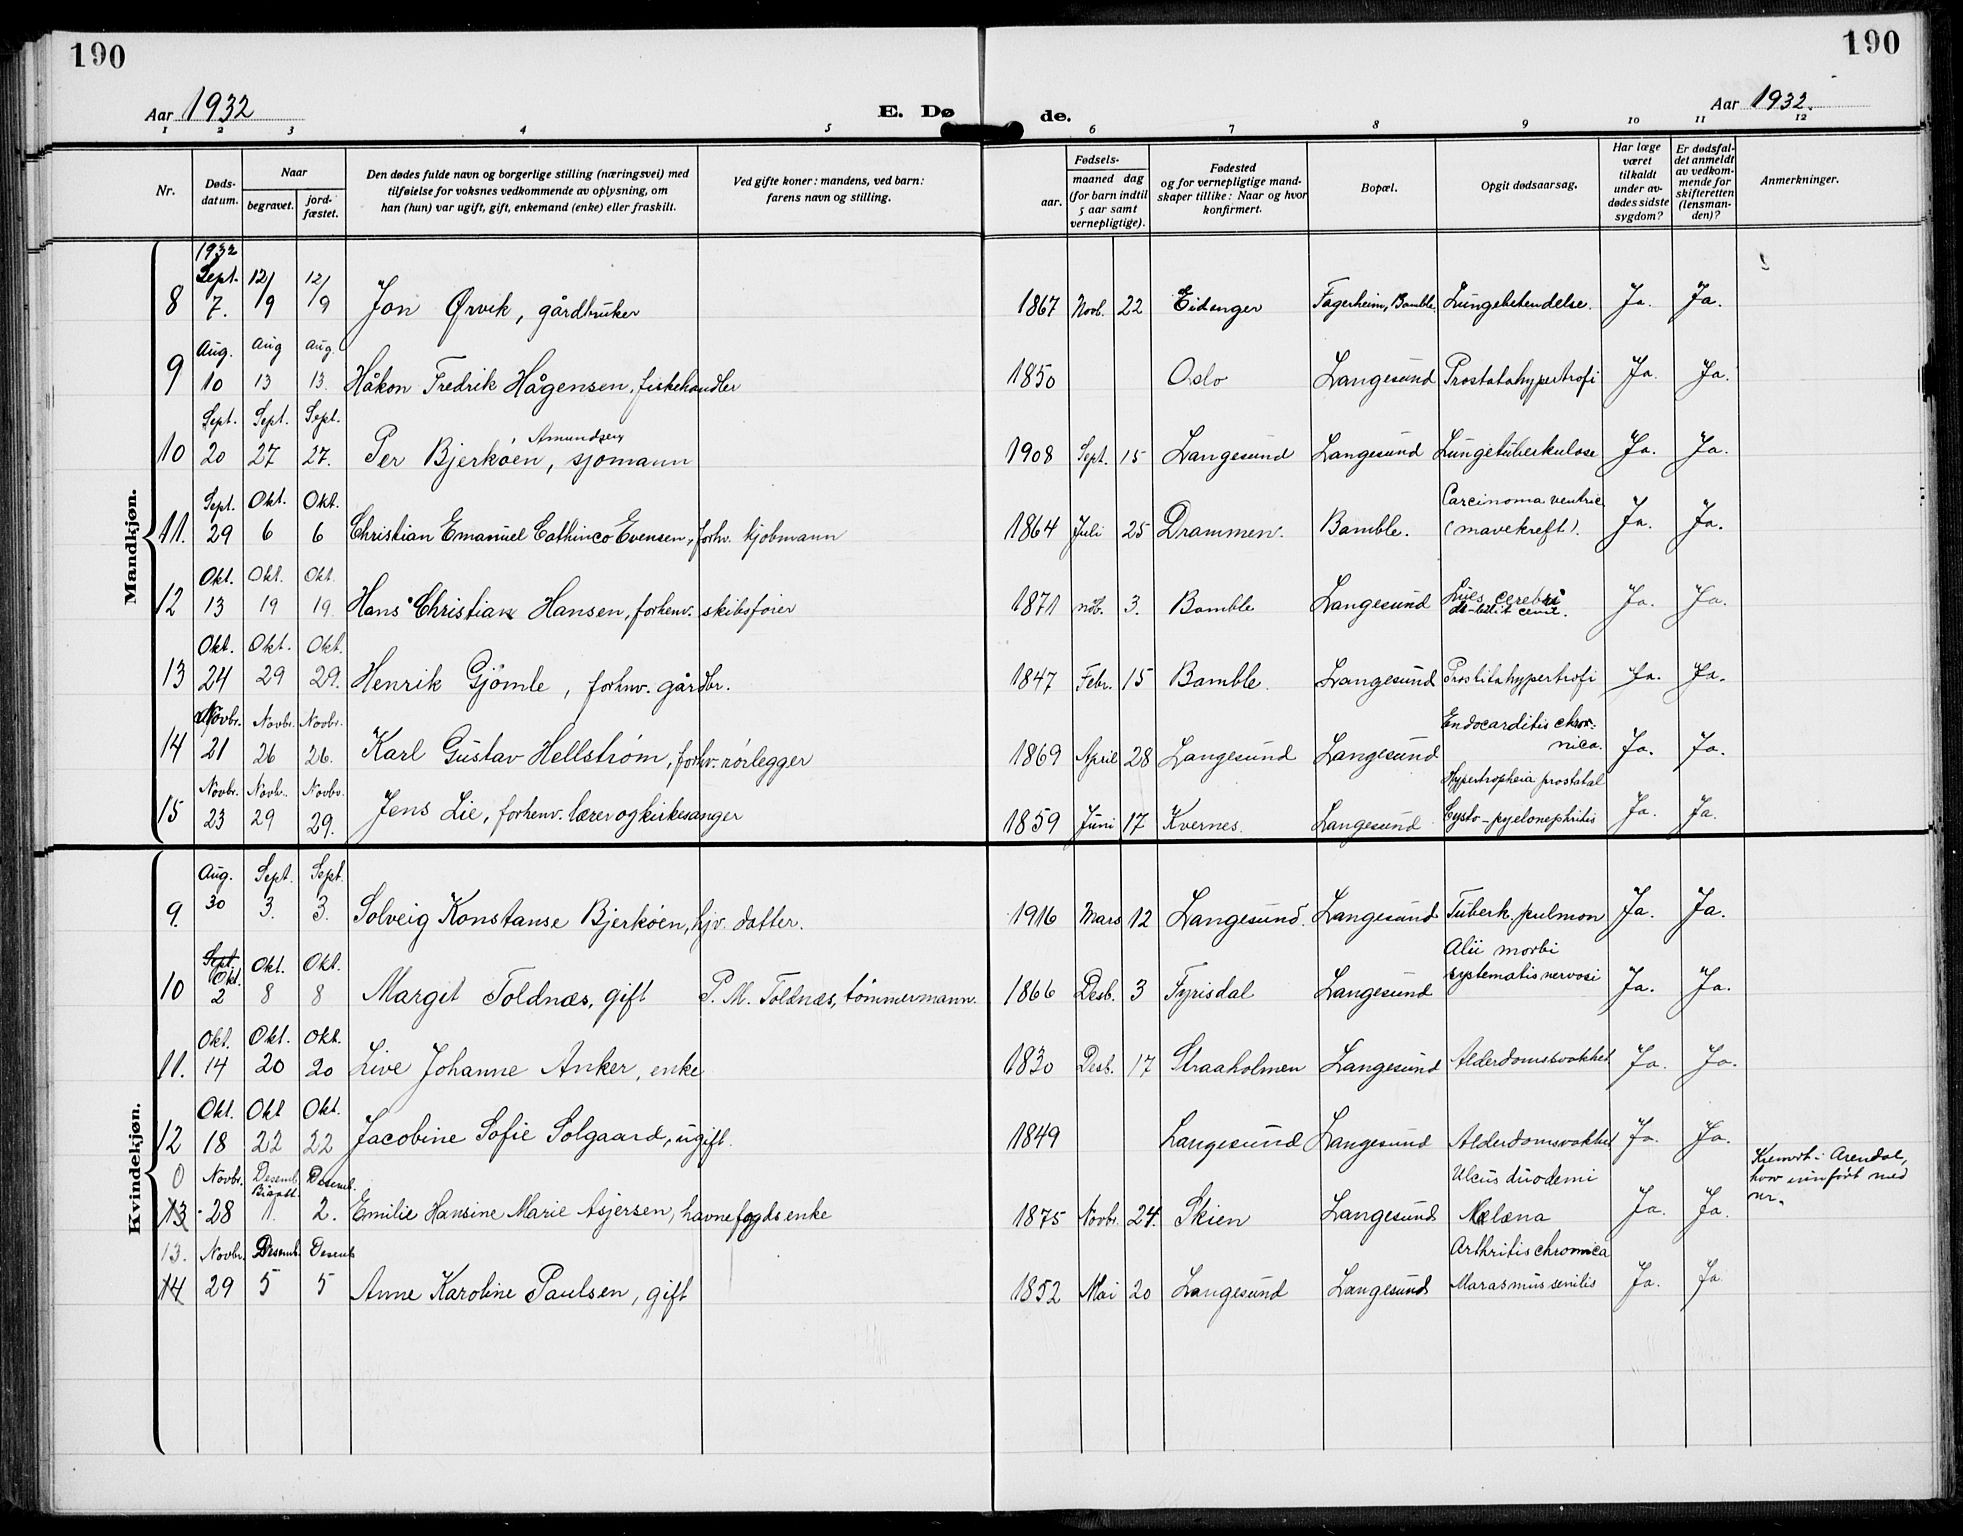 190
190
Aar 1932
E. Dø
de.
Aar 1932.
1 2 3 4 5 6 7 8 9 10 11 12
Nr.
Døds-
datum.
Naar
begravet.
jord-
fæstet.
Den dødes fulde navn og borgerlige stilling (næringsvei) med
tilføielse for voksnes vedkommende av oplysning, om
han (hun) var ugift, gift, enkemand (enke) eller fraskilt.
Ved gifte koner: mandens, ved barn:
farens navn og stilling.
Fødsels-
aar.
maaned dag
(for barn indtil
5 aar samt
vernepligtige).
Fødested
og for vernepligtige mand-
skaper tillike: Naar og hvor
konfirmert.
Bopæl.
Opgit dødsaarsag.
Har læge
været
tilkaldt
under av-
dødes sidste
sygdom?
Er dødsfal-
det anmeldt
av vedkom-
mende for
skifteretten
(lensman-
den)?
Anmerkninger.
Mandkjøn.
1932
8 Sept. 7. 12/9 12/9 Jon Ørvik, gårdbruker 1867 Novb. 22 Eidanger Fagerheim, Bamble. Lungebetendelse. Ja. Ja.
9 Aug. 10 Aug 13 Aug. 13. Håkon Fredrik Hågensen, fiskehandler 1850 Oslo Langesund Prostatahypertrofi Ja. Ja.
10 Sept. 20 Sept. 27 Sept. 27. Per Bjerkøen, Amundsen sjømann 1908 Sept. 15 Langesund Langesund Lungetuberkulose Ja. Ja.
11. Sept. 29 Okt. 6 Okt. 6 Christian Emanuel Cathinco Evensen, forhv. kjøbmann 1864 Juli 25 Drammen. Bamble. Carcinoma ventric
(mavekreft). Ja. Ja.
12 Okt. 13 Okt. 19 Okt. 19. Hans Christian Hansen, forhenv. skibsfører 1871 nov. 3. Bamble Langesund Lues cerebri
Ja. Ja.
13 Okt. 24 Okt. 29 Okt. 29. Henrik Gjømle, forhnv. gårdbr. 1847 Febr. 15 Bamble. Langesund Prostatahypertrofi Ja. Ja.
14 Novbr. 21 Novbr. 26 Novbr. 26. Karl Gustav Hellstrøm, forhv. rørlegger 1869 April 28 Langesund Langesund Endocarditis chro-
nica. Ja. Ja.
15 Novbr. 23 Novb. 29 Novbr. 29. Jens Lie, forhenv. lærer og kirkesanger 1859 Juni 17 Kvernes. Langesund Hypertropheia prostatal
Cysto-pyelonephritis Ja. Ja.
Kvindekjøn.
9. Aug. 30 Sept. 3. Sept. 3. Solveig Konstanse Bjerkøen, hjv. datter. 1916 Mars 12 Langesund. Langesund Tuberk. pulmon Ja. Ja.
10 Sept. Okt. 2 Okt. 8 Okt. 8 Margit Toldnæs, gift P. M. Toldnæs, tømmermann. 1866 Desb. 3 Fyrisdal Langesund Alii morbi
systematis nervosi Ja. Ja.
11. Okt. 14 Okt. 20 Okt. 20 Live Johanne Anker, enke 1830 Desb. 17 Straaholmen Langesund Alderdomssvakhet Ja. Ja.
12 Okt. 18 Okt 22 Okt. 22 Jacobine Sofie Solgaard, ugift. 1849 Langesund Langesund Alderdomsvakhet Ja. Ja.
0 13 Novbr. 28 Desemb. 1. Desemb. 2. Emilie Hansine Marie Asjersen, havnefogds enke 1875 Novbr. 24. Skien Langesund Ulcus duodemi
Melæna Ja. Ja. Kremert i Arendal,
hvor innført med
nr.
13. 14 Novbr. 29 Desemb. 5 Desemb 5 Anne Karoline Paulsen, gift 1852 Mai 20 Langesund Langesund Arthritis chronica
Marasmus senilis Ja. Ja